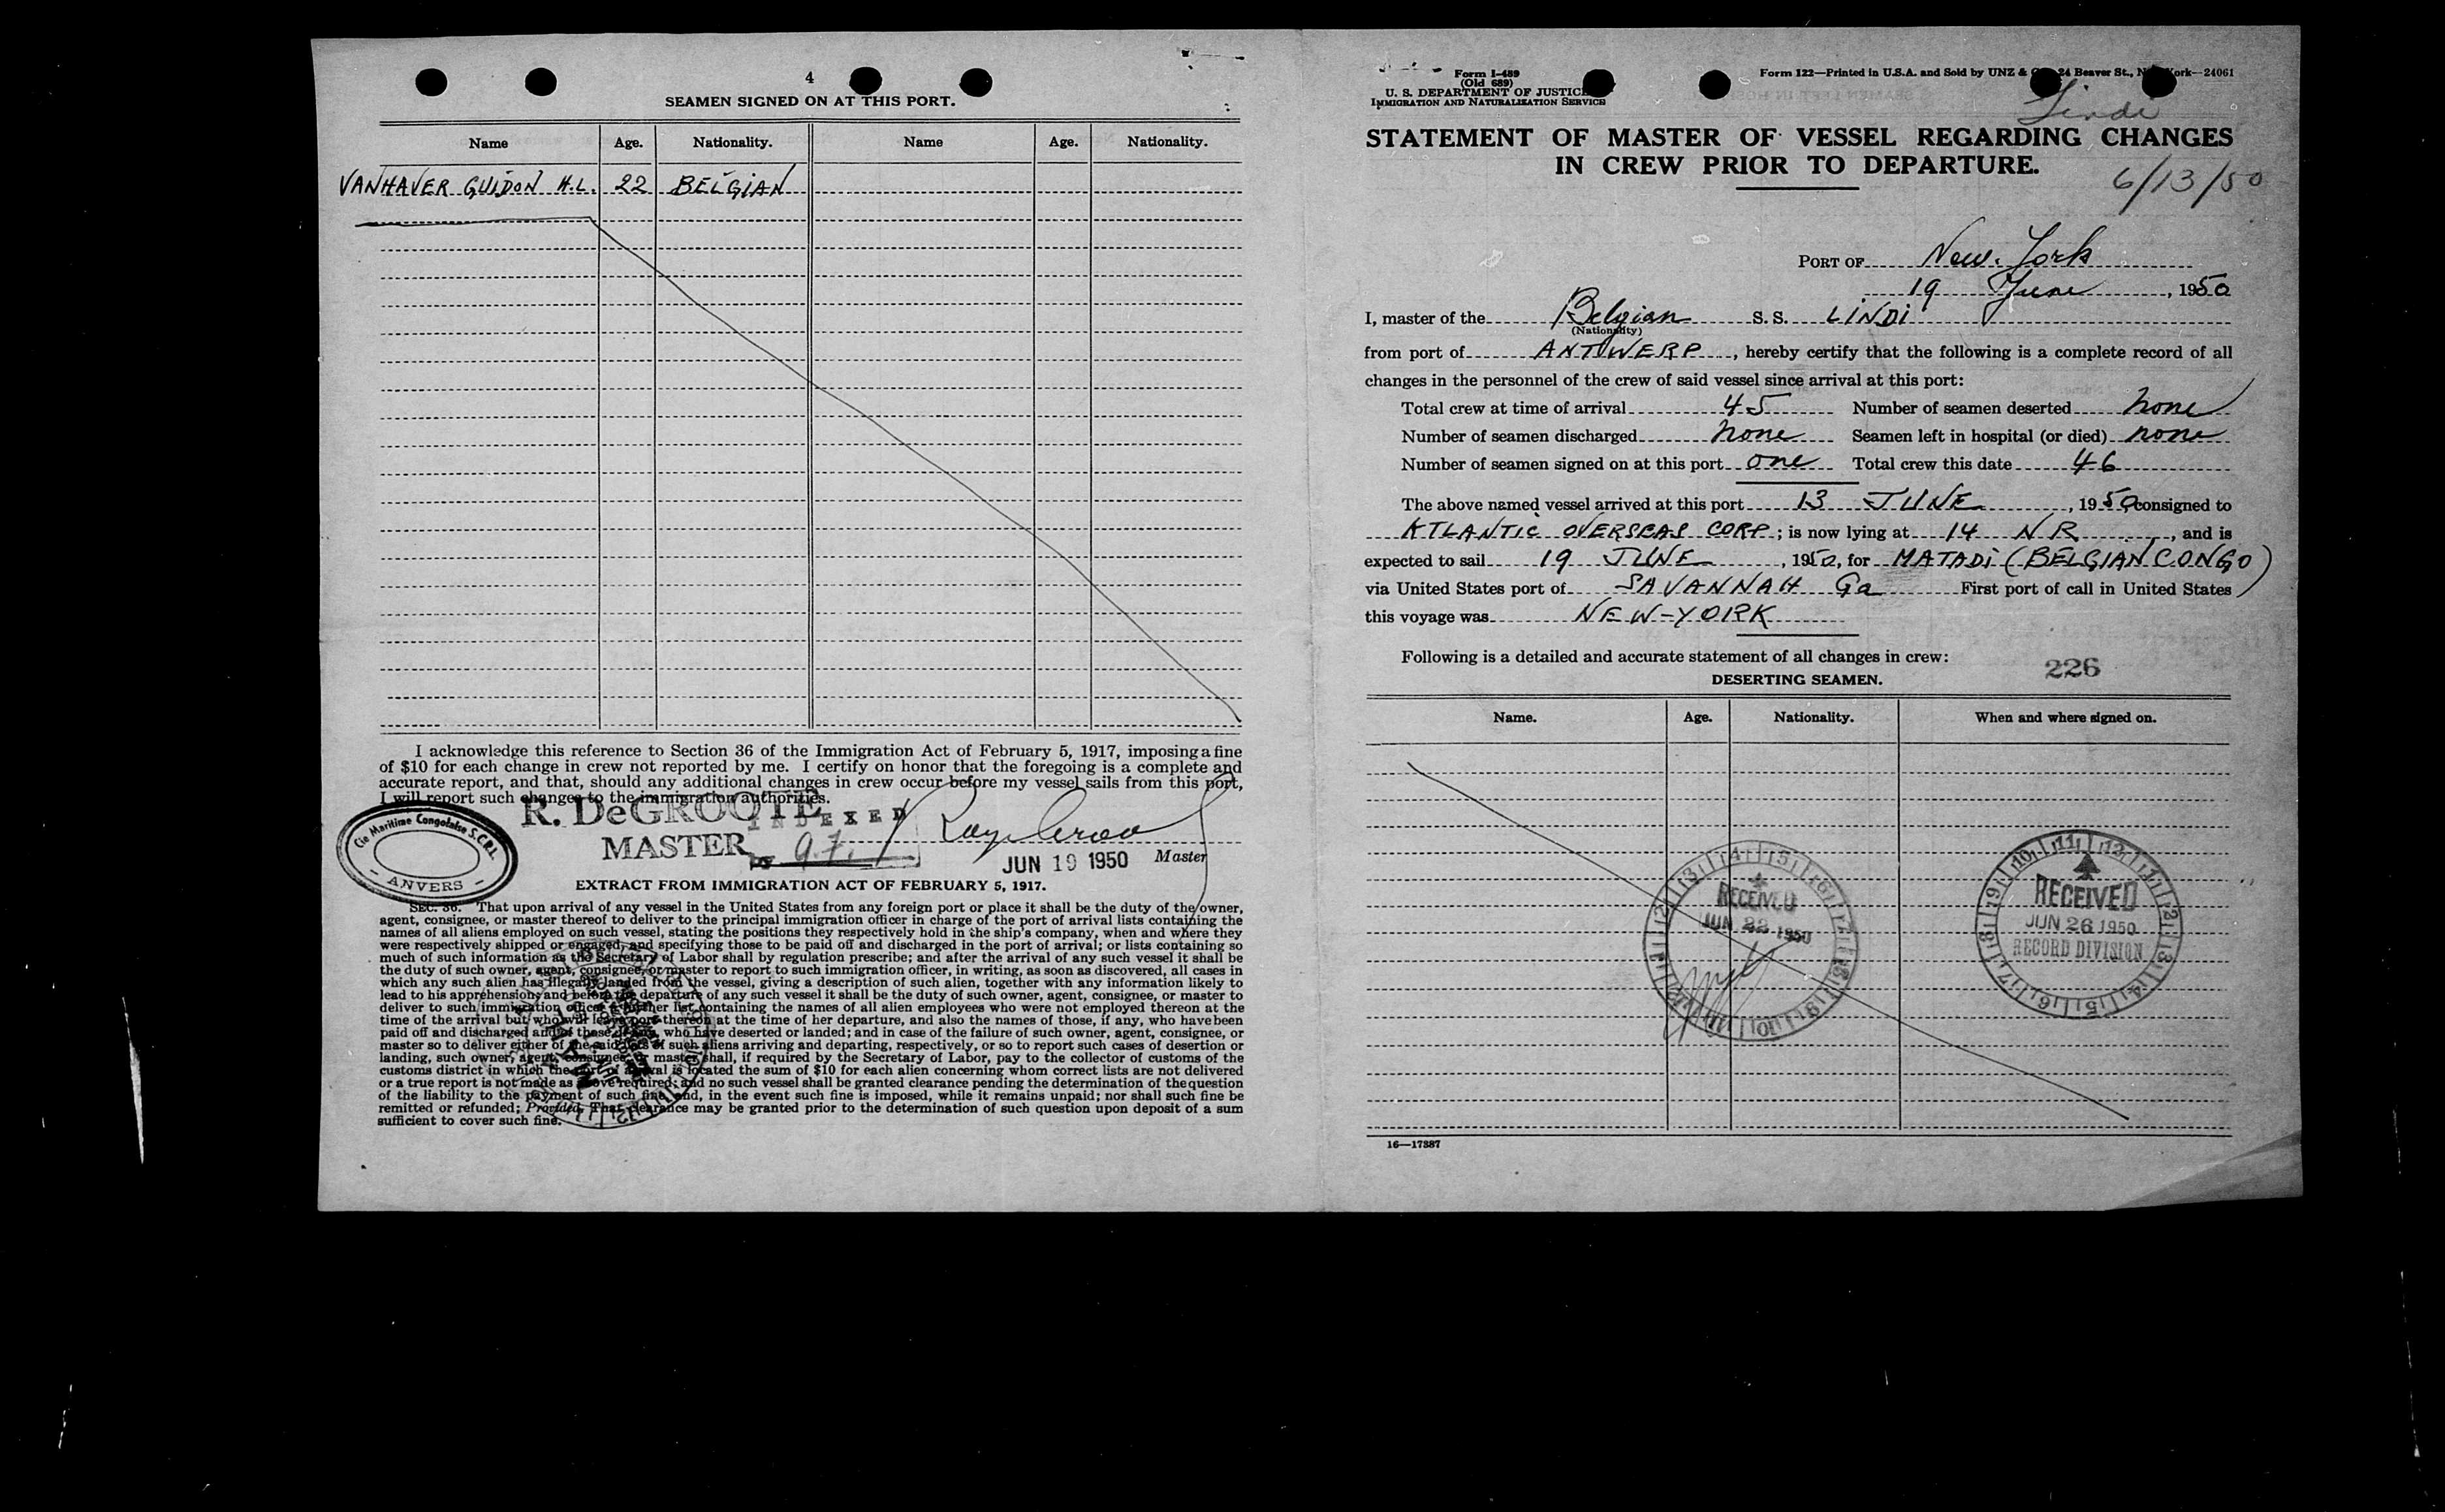 4
SEAMEN SIGNED ON AT THIS PORT.
Name Age. Nationality. Name Age. Nationality.
VANHAVER GUIDON H.L. 22 BELGIAN
I acknowledge this reference to Section 36 of the Immigration Act of February 5, 1917, imposing a fine
of $10 for each change in crew not reported by me. I certify on honor that the foregoing is a complete and
accurate report, and that, should any additional changes in crew occur before my vessel sails from this port,
I will report such changes to the immigration authorities.
R. DeGROOTE
INDEXED
MASTER
JUN 19 1950 Master
Cie Maritime Congolaise S.C.R.L.
- ANVERS -
EXTRACT FROM IMMIGRATION ACT OF FEBRUARY 5, 1917.
SEC. 36. That upon arrival of any vessel in the United States from any foreign port or place it shall be the duty of the owner,
agent, consignee, or master thereof to deliver to the principal immigration officer in charge of the port of arrival lists containing the
names of all aliens employed on such vessel, stating the positions they respectively hold in the ship's company, when and where they
were respectively shipped or engaged, and specifying those to be paid off and discharged in the port of arrival; or lists containing so
much of such information as the Secretary of Labor shall by regulation prescribe; and after the arrival of any such vessel it shall be
the duty of such owner, agent, consignee, or master to report to such immigration officer, in writing, as soon as discovered, all cases in
which any such alien has illegally landed from the vessel, giving a description of such alien, together with any information likely to
lead to his apprehension; and before the departure of any such vessel it shall be the duty of such owner, agent, consignee, or master to
deliver to such immigration officer a further list containing the names of all alien employees who were not employed thereon at the
time of the arrival but who will leave port thereon at the time of her departure, and also the names of those, if any, who have been
paid off and discharged and of those, if any, who have deserted or landed; and in case of the failure of such owner, agent, consignee, or
master so to deliver either of the said lists of such aliens arriving and departing, respectively, or so to report such cases of desertion or
landing, such owner, agent, consignee, or master shall, if required by the Secretary of Labor, pay to the collector of customs of the
customs district in which the port of arrival is located the sum of $10 for each alien concerning whom correct lists are not delivered
or a true report is not made as above required; and no such vessel shall be granted clearance pending the determination of the question
of the liability to the payment of such fine and, in the event such fine is imposed, while it remains unpaid; nor shall such fine be
remitted or refunded; Provided, That clearance may be granted prior to the determination of such question upon deposit of a sum
sufficient to cover such fine.
Form I-489
(Old 689)
U. S. DEPARTMENT OF JUSTICE
IMMIGRATION AND NATURALIZATION SERVICE
Form 122—Printed in U.S.A. and Sold by UNZ & 24 Beaver St., York—24061
Lindi
STATEMENT OF MASTER OF VESSEL REGARDING CHANGES
IN CREW PRIOR TO DEPARTURE.
6/13/50
PORT OF New-York
19 June, 1950
I, master of the Belgian S. S. LINDI
(Nationality)
from port of ANTWERP, hereby certify that the following is a complete record of all
changes in the personnel of the crew of said vessel since arrival at this port:
Total crew at time of arrival 45 Number of seamen deserted none
Number of seamen discharged none Seamen left in hospital (or died) none
Number of seamen signed on at this port one Total crew this date 46
The above named vessel arrived at this port 13 JUNE, 1950, consigned to
ATLANTIC OVERSEAS CORP; is now lying at 14 NR, and is
expected to sail 19 JUNE, 1950, for MATADI (BELGIAN CONGO)
via United States port of SAVANNAH Ga First port of call in United States
this voyage was NEW-YORK
Following is a detailed and accurate statement of all changes in crew:
226
DESERTING SEAMEN.
Name. Age. Nationality. When and where signed on.
RECEIVED
JUN 22 1950
RECEIVED
JUN 26 1950
RECORD DIVISION
16—17887